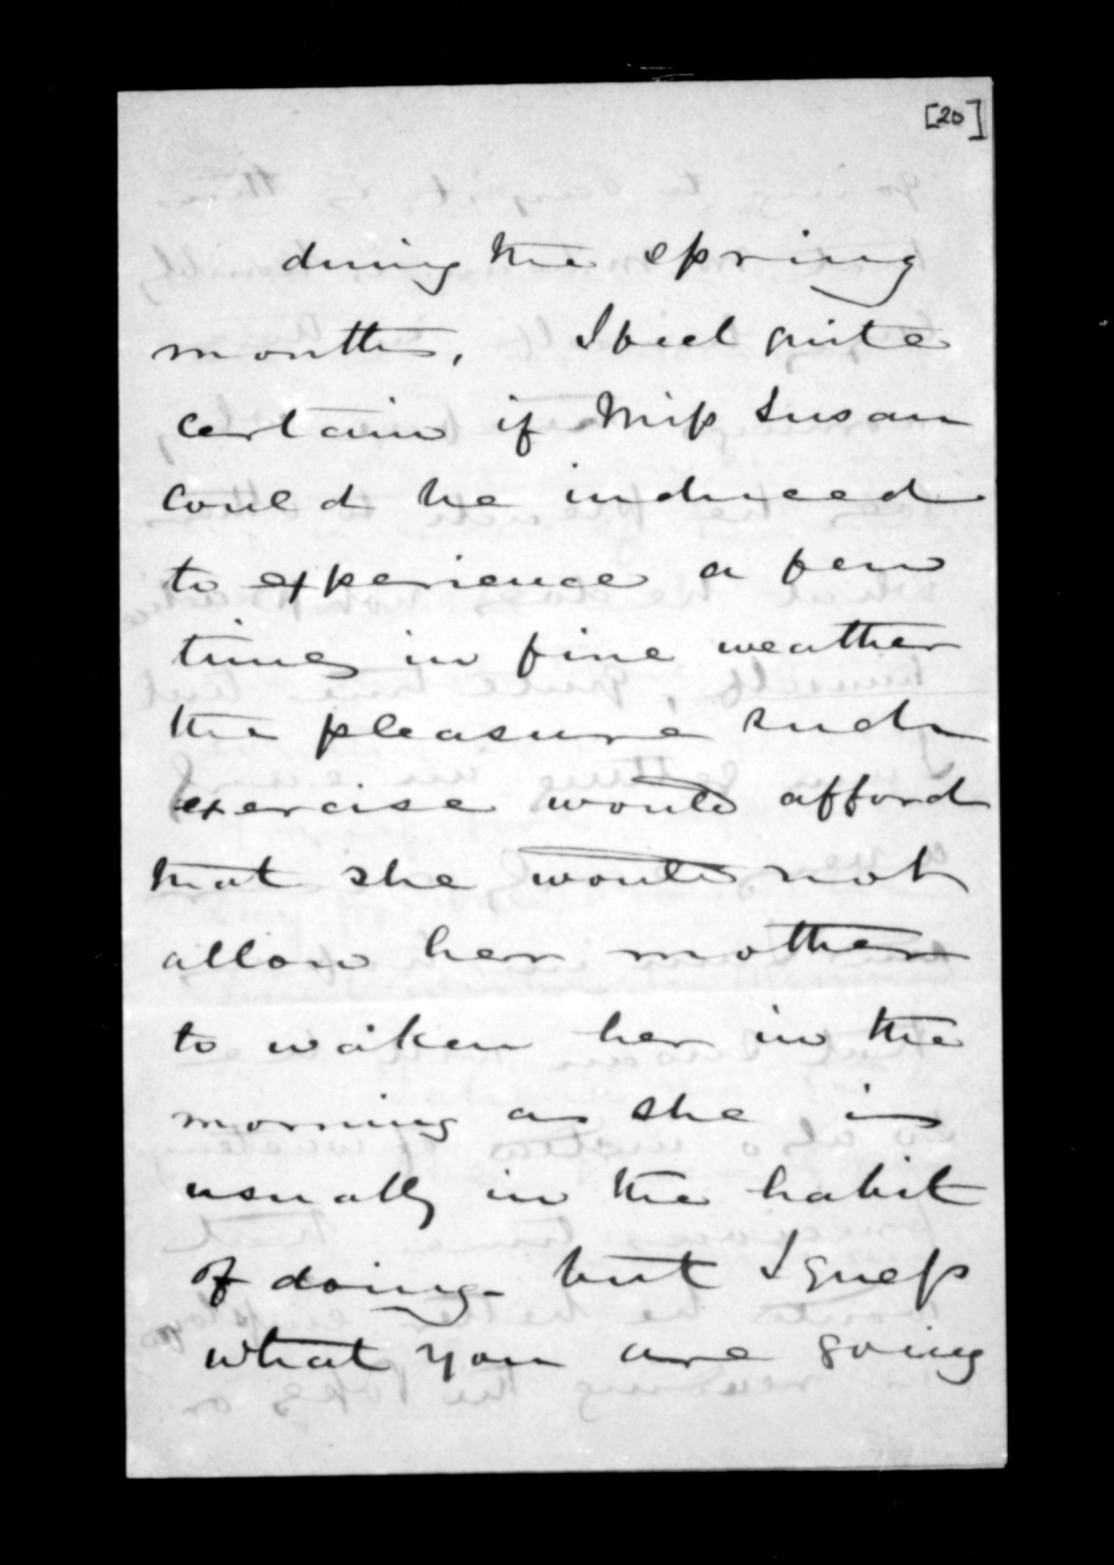 [20]
during the spring
months, I feel quite
certain if Miss Susan
could be induced
to experience a few
times in fine weather
the pleasure such
exercise would afford
that she would not
allow her mother
to waken her in the
morning as she is
usually in the habit
of doing - but I guess
what you are going